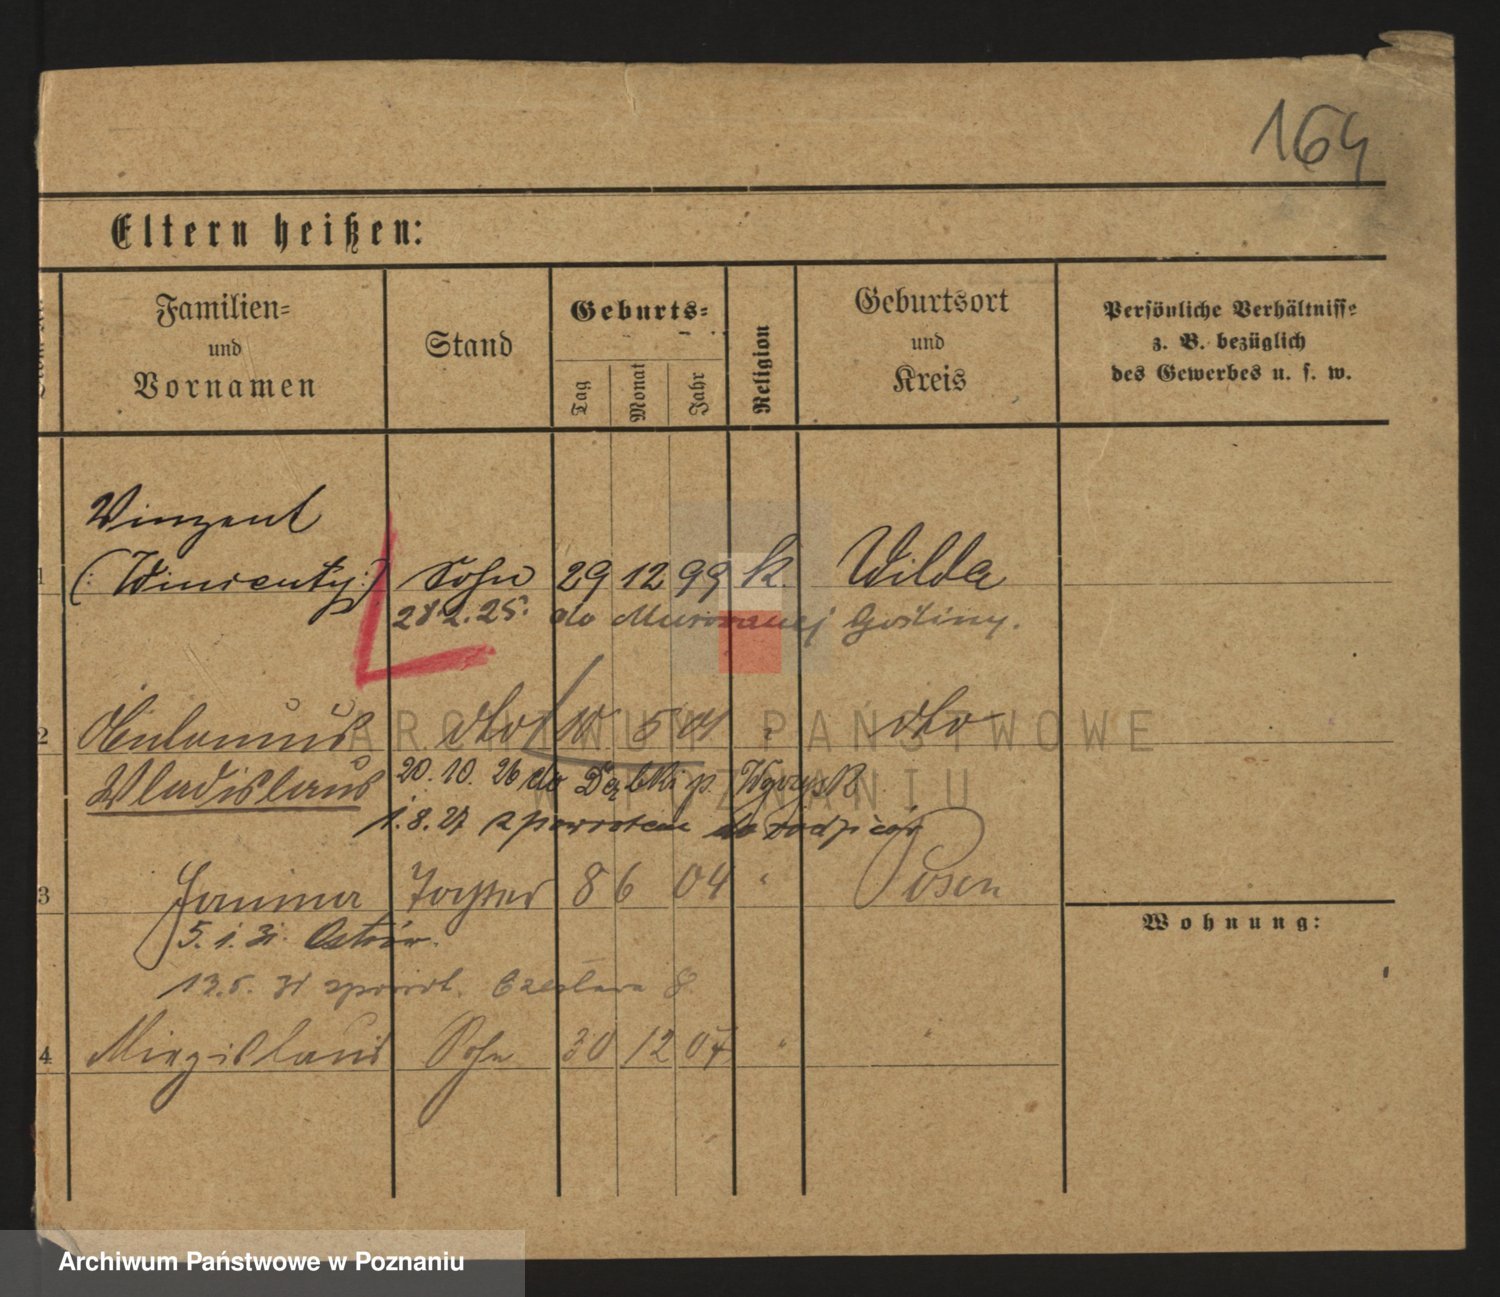 164
Eltern heißen:
Familien= und Vornamen
Stand
Geburts=
Tag
Monat
Jahr
Religion
Geburtsort und Kreis
Persönliche Verhältnisse
z. B. bezüglich
des Gewerbes u. s. w.
Vinzent
1 (: Wincenty :) Sohn 29 12 99 k. Wilda
28.2.25. do Murowanej Gośliny.
2 dto 10 5 01 " dto
Wladislaus 20.10.26 do Dębki p. Wyrzysk
1.8.27 z powrotem do rodziców
3 Janina Tochter 8 6 04 " Posen
Wohnung:
5.1.31. Ostrów.
13.5.31 zpowrot. Czesława 8.
4 Miezislaus Sohn 30 12 07 " "
ARCHIWUM PAŃSTWOWE
W POZNANIU
Archiwum Państwowe w Poznaniu